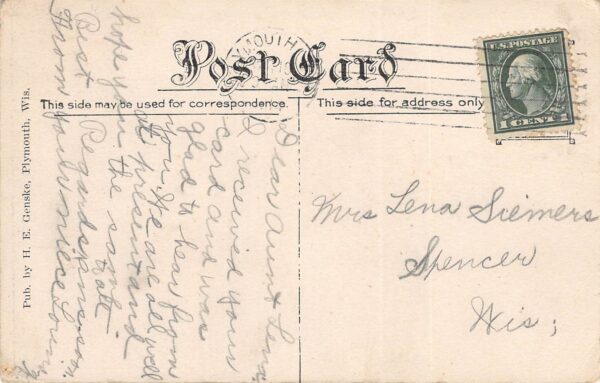 YMOUTH
Post Card
This side may be used for correspondence.
This side for address only
U.S. POSTAGE
1 CENT 1
Pub. by H. E. Genske, Plymouth, Wis.
Dear Aunt Lena
I received your
card and was
glad to hear from
you. We are all well
at present and
hope you the same
Best Regards
to all
From your niece
Mrs Lena Siemers
Spencer
Wis;